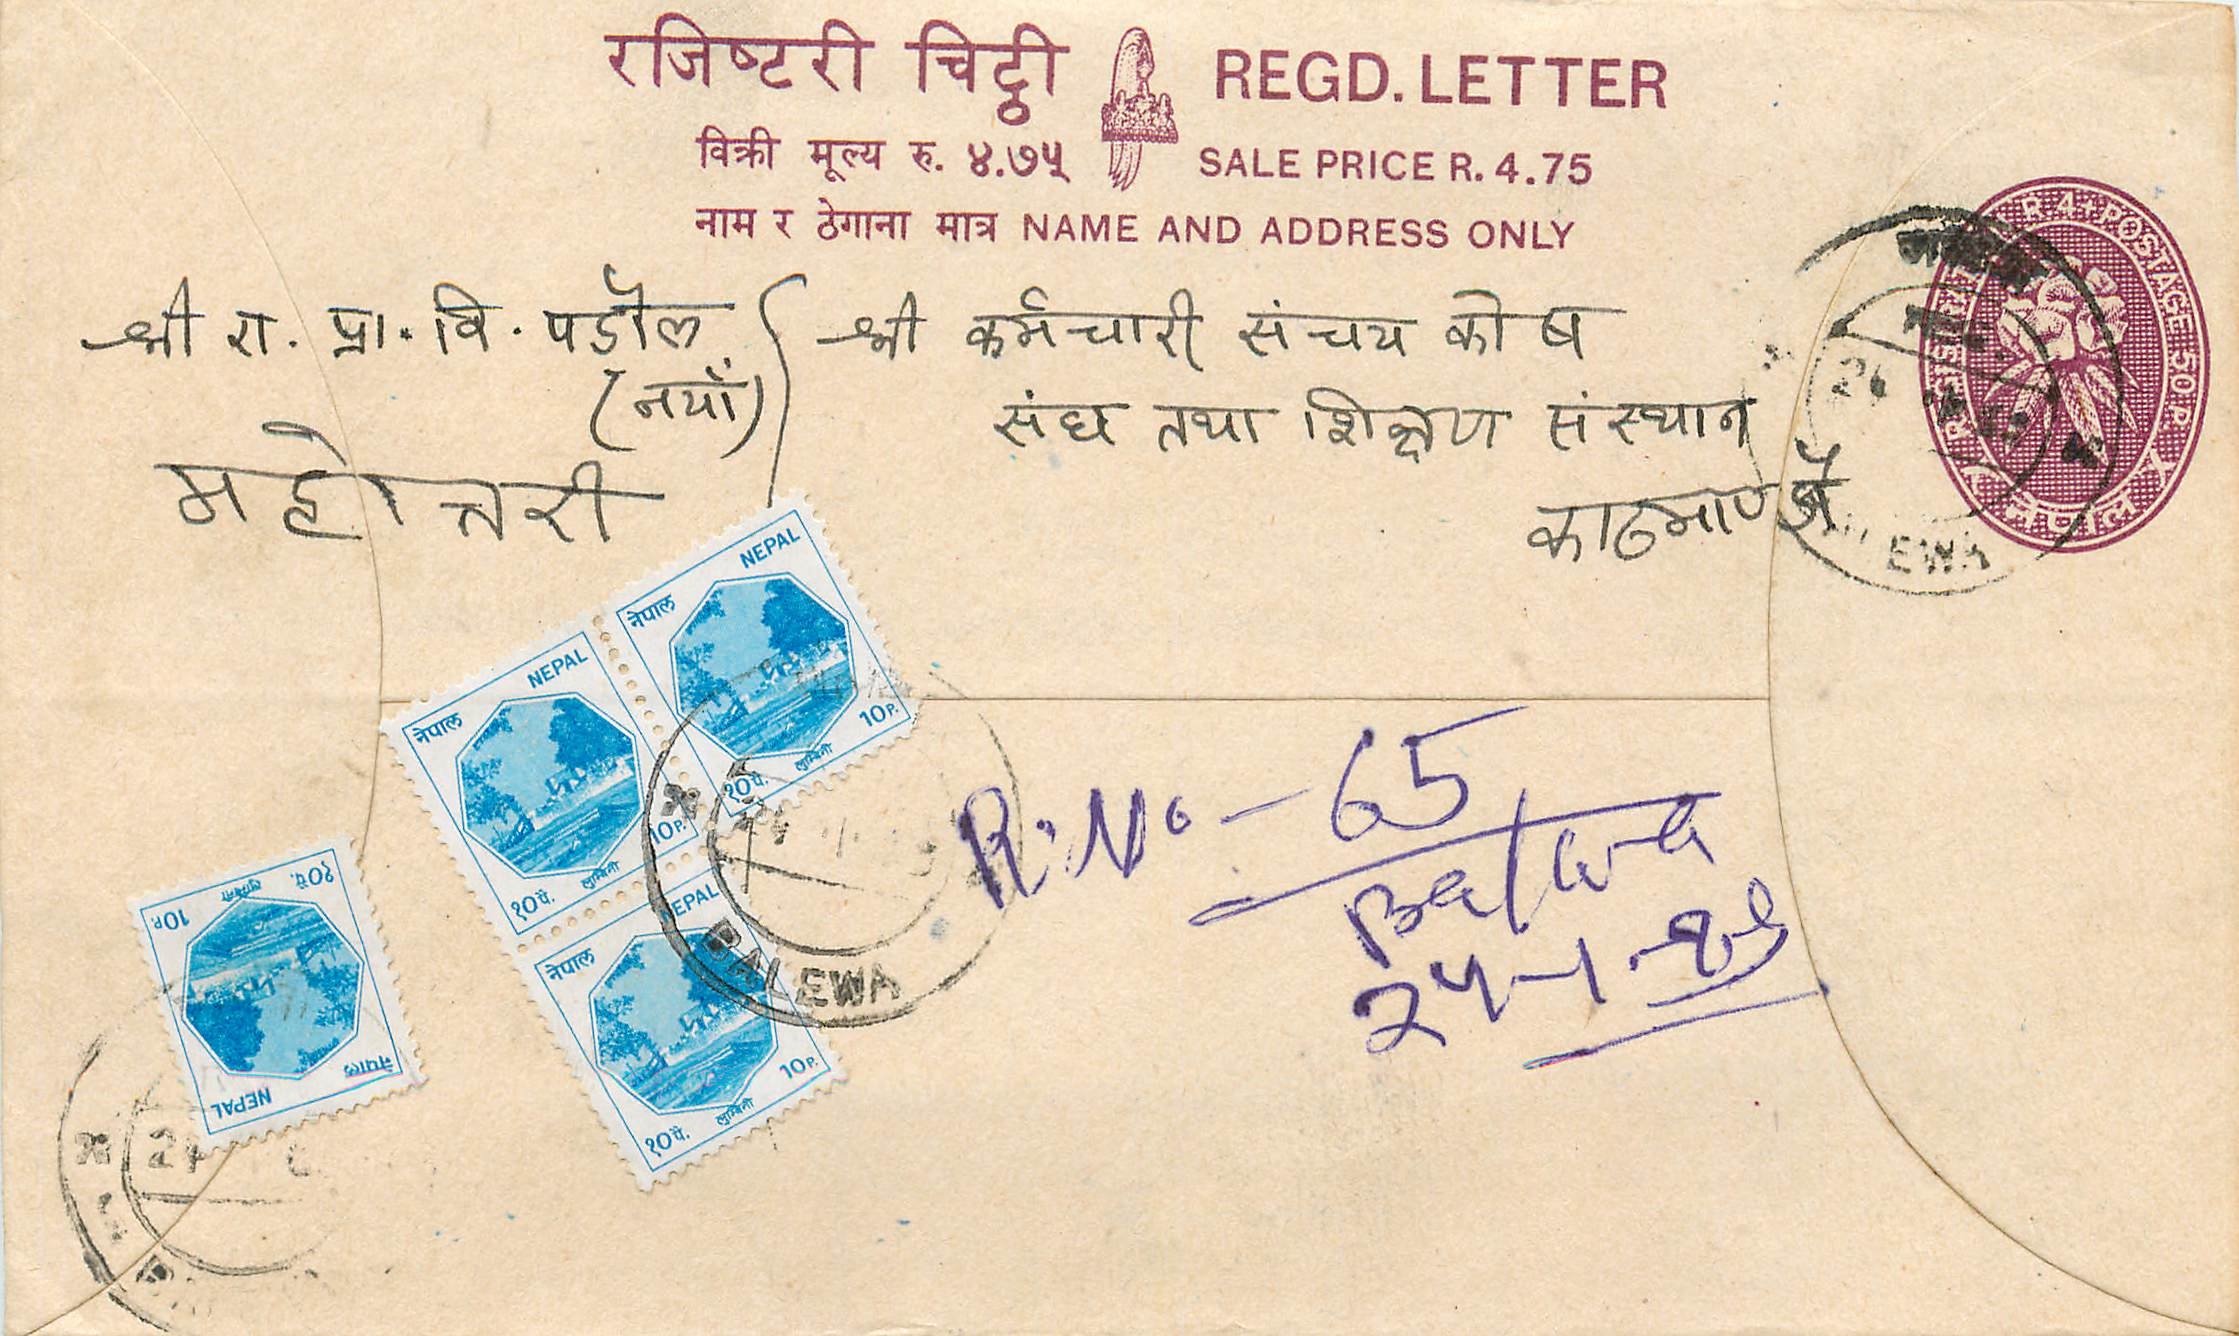 रजिष्टरी चिट्ठी REGD. LETTER
विक्री मूल्य रु. ४.७५ SALE PRICE R. 4.75
नाम र ठेगाना मात्र NAME AND ADDRESS ONLY
R.4+POSTAGE 50P.
नेपाल
श्री रा. प्रा. वि. पडौल
(नयाँ)
महोत्तरी
श्री कर्मचारी संचय कोष
संघ तथा शिक्षण संस्थान
काठमाण्डौ
EWA
नेपाल NEPAL
१०पै. लुम्बिनी 10P.
नेपाल NEPAL
१०पै. लुम्बिनी 10P.
नेपाल NEPAL
१०पै. लुम्बिनी 10P.
नेपाल NEPAL
१०पै. लुम्बिनी 10P.
BALEWA
R. No - 65
Balwa
24-1-89